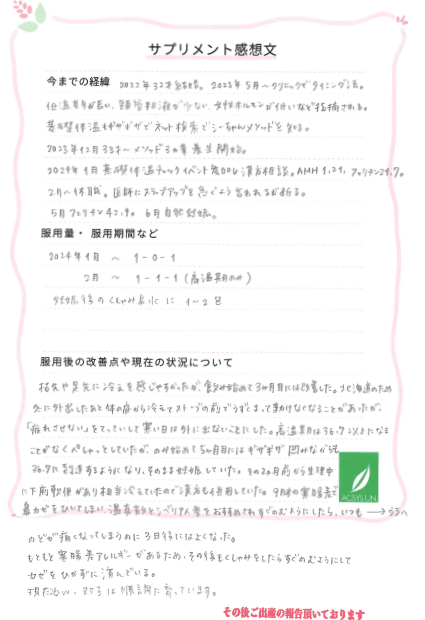 サプリメント感想文
今までの経緯 2022年32才結婚。2023年5月〜クリニックでタイミング法。
低温期が長い、頸管粘液が少ない、女性ホルモンが低いなど指摘される。
基礎体温もギザギザでネット検索でシーちゃんメソッドを知る。
2023年12月33才〜メソッド3の養生開始。
2024年1月基礎体温チェックイベント 漢方相談。AMH 1.21, フェリチン21.7。
2月〜休職。医師にステップアップを急ぐよう言われるが断る。
5月フェリチン42.9。6月自然妊娠。
服用量・服用期間など
2024年1月 〜 1-0-1
2月 〜 1-1-1 (高温期のみ)
妊娠後のくしゃみ鼻水に 1〜2包
服用後の改善点や現在の状況について
指先や足先に冷えを感じやすかったが、飲み始めて3ヶ月目には改善した。北海道のため
冬に外出したあと体の底から冷えてストーブの前でうずくまって動けなくなることがあったが、
「疲れさせない」をモットーにして寒い日は外に出ないことにした。高温期は36.7以上になる
ことがなくぺしゃっとしていたが、のみ始めて5ヶ月目にはギザギザ凹みながらも
36.7に到達するようになり、そのまま妊娠していた。その2ヶ月前から生理中
に下痢軟便があり相当冷えていたので漢方も併用していた。9月頃の寒暖差で
鼻カゼをひいてしまい、温 をおすすめされすぐのむようにしたら、いつも → うらへ
のどが痛くなってしまうのに3日程でよくなった。
もともと寒暖差アレルギーがあるため、その後もくしゃみをしたらすぐのむようにして
カゼをひかずに済んでいる。
現在 は順調に育っています。
ACSYS UN
その後ご出産の報告頂いております